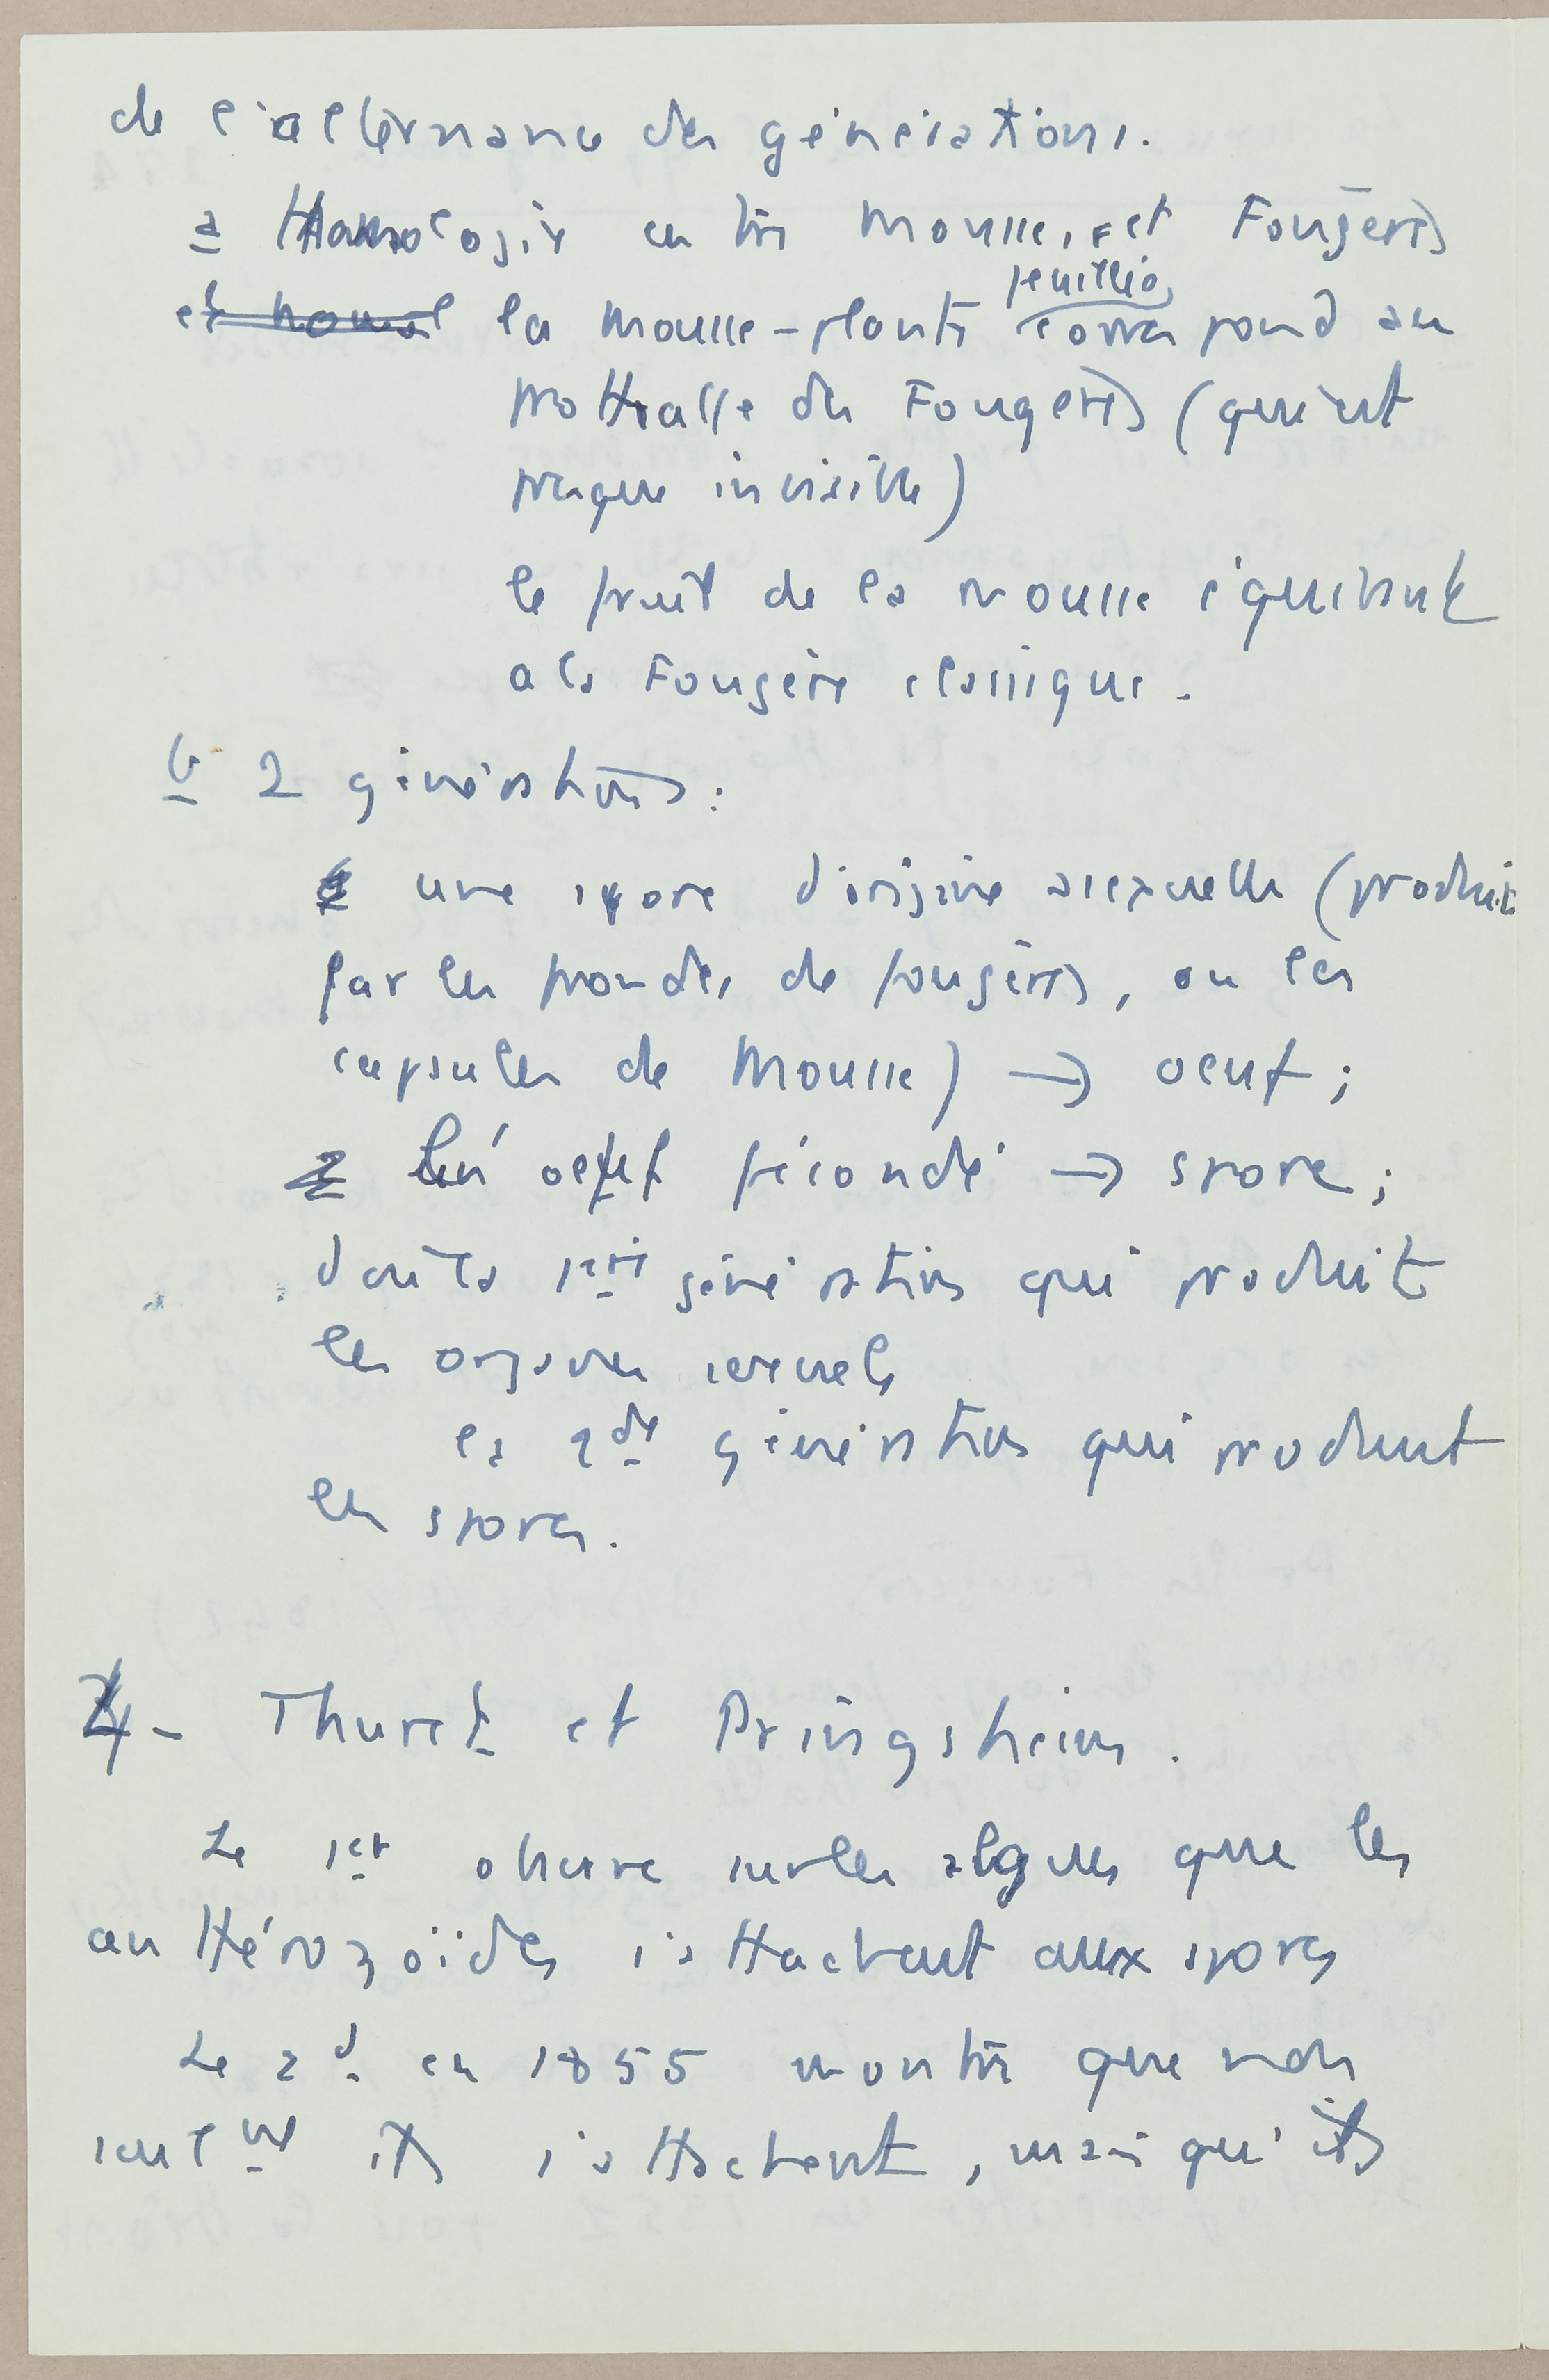 de l'alternance des générations.
a Homologie entre Mousses et Fougères
et homol la mousse-plante feuillée correspond au
prothalle des Fougères (qui est
presque invisible)
le fruit de la mousse équivaut
a la Fougère classique.
b 2 générations :
une spore d'origine asexuelle (produit
par les frondes de fougères, ou les
capsules de Mousse) → oeuf ;
2 oeuf fécondé → spore ;
d'où la 1ère génération qui produit
les organes sexuels
la 2de génération qui produit
les spores.
4 - Thuret et Pringsheim.
Le 1er observe sur les algues que les
anthérozoïdes s'attachent aux spores
Le 2d en 1855 montre que non
seulmt ils s'attachent, mais qu'ils